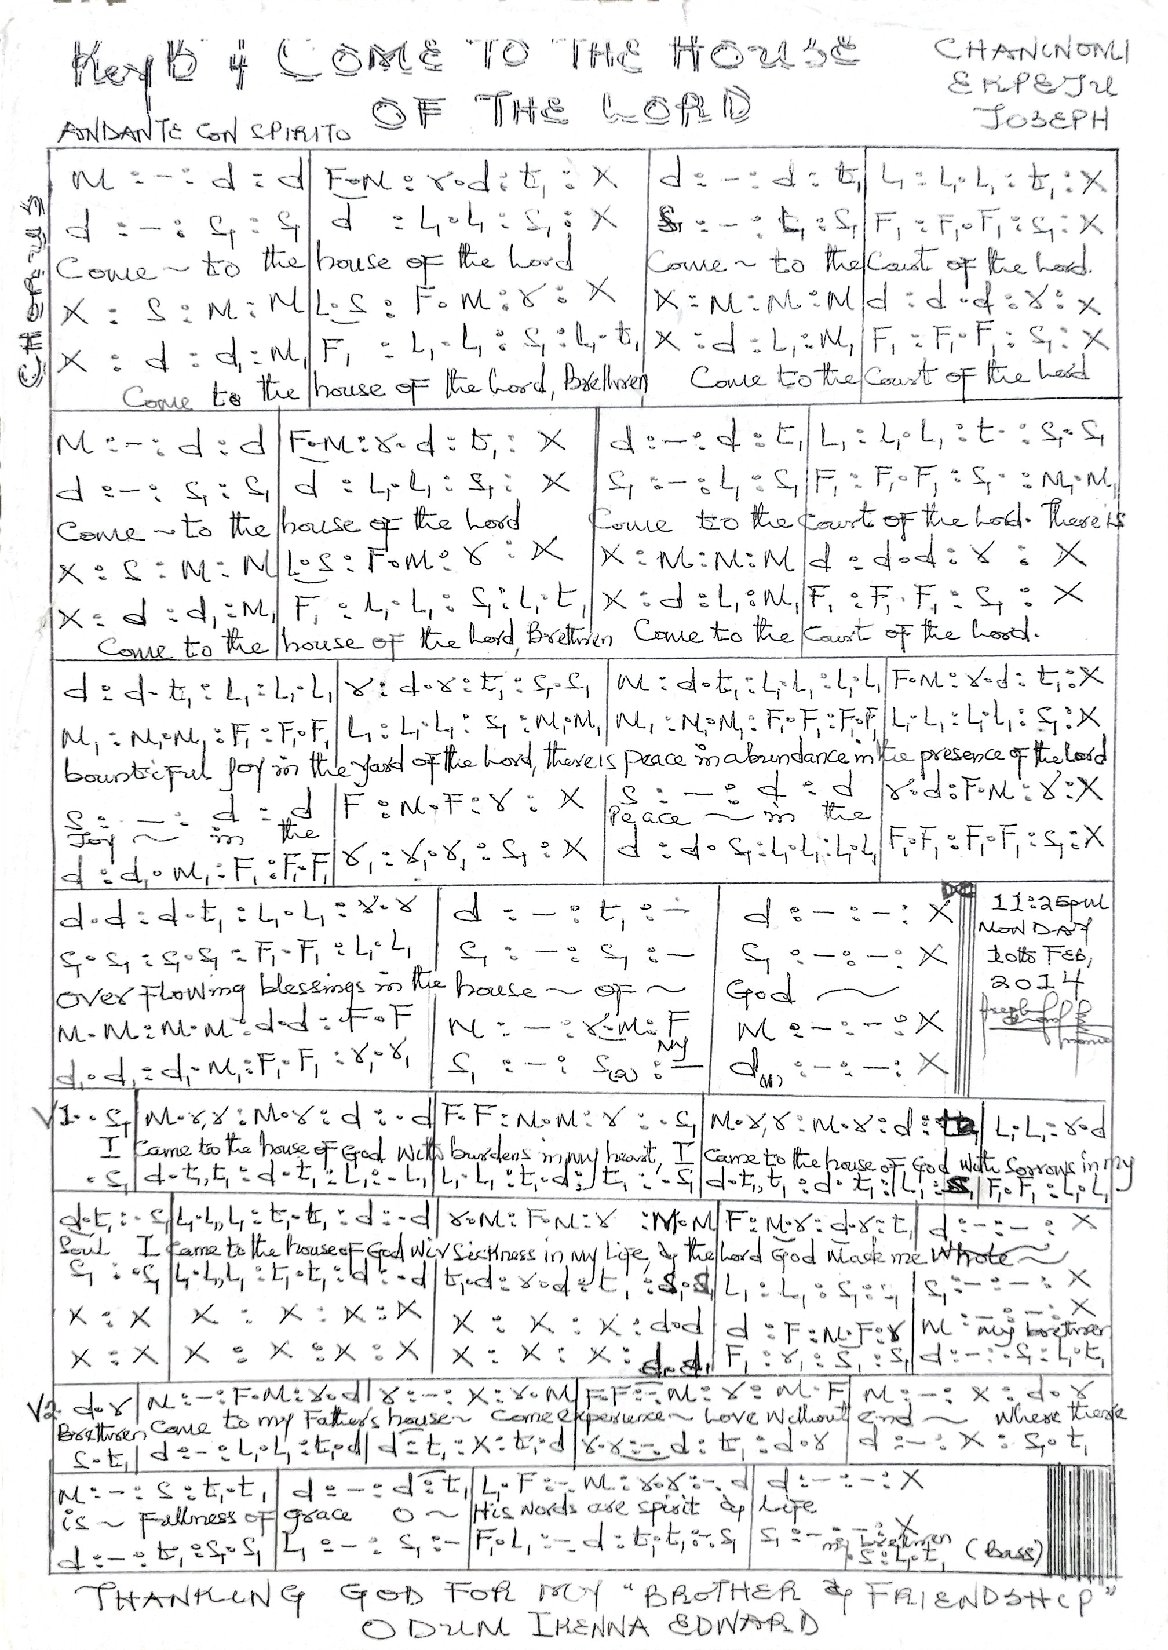 Key D 4/4 COME TO THE HOUSE
OF THE LORD
CHANCNOMI
EKPEJU
JOSEPH
ANDANTE CON SPIRITO
CHORUS
M : - : d : d | F.M : r.d : t₁ : X | d : - : d : t₁ | L₁ : L₁.L₁ : t₁ : X
d : - : S₁ : S₁ | d : L₁.L₁ : S₁ : X | S₁ : - : t₁ : S₁ | F₁ : F₁.F₁ : S₁ : X
Come ~ to the | house of the Lord | Come ~ to the | Court of the Lord.
X : S : M : M | L.S : F.M : r : X | X : M : M : M | d : d.d : r : X
X : d : d₁ : M₁ | F₁ : L₁.L₁ : S₁ : L₁.t₁ | X : d : L₁ : M₁ | F₁ : F₁.F₁ : S₁ : X
Come to the | house of the Lord, Brethren | Come to the | Court of the Lord
M : - : d : d | F.M : r.d : t₁ : X | d : - : d : t₁ | L₁ : L₁.L₁ : t. : S₁.S₁
d : - : S₁ : S₁ | d : L₁.L₁ : S₁ : X | S₁ : - : L₁ : S₁ | F₁ : F₁.F₁ : S₁. : M₁.M₁
Come ~ to the | house of the Lord | Come to the | Court of the Lord. There is
X : S : M : M | L.S : F.M : r : X | X : M : M : M | d : d.d : r : X
X : d : d₁ : M₁ | F₁ : L₁.L₁ : S₁ : L₁.t₁ | X : d : L₁ : M₁ | F₁ : F₁.F₁ : S₁ : X
Come to the | house of the Lord, Brethren | Come to the | Court of the Lord.
d : d.t₁ : L₁ : L₁.L₁ | r : d.r : t₁ : S₁.S₁ | M : d.t₁ : L₁.L₁ : L₁.L₁ | F.M : r.d : t₁ : X
M₁ : M₁.M₁ : F₁ : F₁.F₁ | L₁ : L₁.L₁ : S₁ : M₁.M₁ | M₁ : M₁.M₁ : F₁.F₁ : F₁.F₁ | L₁.L₁ : L₁.L₁ : S₁ : X
bounticful joy in the | yard of the Lord, there is | peace in abundance in | the presence of the Lord
S : - : d : d | F : M.F : r : X | S : - : d : d | r.d : F.M : r : X
Joy ~ in the | Peace ~ in the
d : d₁.M₁ : F₁ : F₁.F₁ | r₁ : r₁.r₁ : S₁ : X | d : d.S₁ : L₁.L₁ : L₁.L₁ | F₁.F₁ : F₁.F₁ : S₁ : X
d.d : d.t₁ : L₁.L₁ : r.r | d : - : t₁ : - | d : - : - : X
S₁.S₁ : S₁.S₁ : F₁.F₁ : L₁.L₁ | S₁ : - : S₁ : - | S₁ : - : - : X
Over Flowing blessings in the | house ~ of ~ | God ~
M.M : M.M : d.d : F.F | M : - : r.M : F | M : - : - : X
My
d₁.d₁ : d₁.M₁ : F₁.F₁ : r₁.r₁ | S₁ : - : S₁ : - | d : - : - : X
11:25pm
MONDAY
10th FEB,
2014
V1 . S₁ | M.r,r : M.r : d : .d | F.F : M.M : r : .S₁ | M.r,r : M.r : d : | L₁.L₁ : r.d
I | Came to the house of God with | burdens in my heart, I | Came to the house of God | with sorrows in my
. S₁ | d.t₁,t₁ : d.t₁ : L₁ : .L₁ | L₁.L₁ : t₁.d : t₁ : .S₁ | d.t₁,t₁ : d.t₁ : L₁ : S₁ | F₁.F₁ : L₁.L₁
d.t₁ : .S₁ | L₁.L₁,L₁ : t₁.t₁ : d : .d | r.M : F.M : r : M.M | F : M.r : d.r : t₁ | d : - : - : X
Soul I | Came to the house of God | Wiv Sickness in my Life, & | the Lord God Made me | Whole ~
S₁ : .S₁ | L₁.L₁,L₁ : t₁.t₁ : d : .d | t₁.d : r.d : t₁ : S₁.S₁ | L₁ : L₁ : S₁ : S₁ | S₁ : - : - : X
X : X | X : X : X : X | X : X : X : d.d | d : F : M.F : r | M : - : - : X
my brethren
X : X | X : X : X : X | X : X : X : d.d₁ | F₁ : r₁ : S₁ : S₁ | d : - : S₁ : L₁.t₁
V2. d.r | M : - : F.M : r.d | r : - : X : r.M | F.F : - . M : r : M.F | M : - : X : d.r
Brethren | Come to my Father's house ~ | Come experience ~ | Love Without | end ~ where there
S.t₁ | d : - : L₁.L₁ : t₁.d | d : t₁ : X : t₁.d | r.r : - . d : t₁ : d.r | d : - : X : S₁.t₁
M : - : S : t₁.t₁ | d : - : d : t₁ | L₁.F : - . M : r.r : - . d | d : - : - : X
is ~ Fullness of | grace O ~ | His words are spirit & | Life
d : - : t₁ : S₁.S₁ | L₁ : - : S₁ : - | F₁.L₁ : - . d : t₁.t₁ : . S₁ | S₁ : - : - : X
my brethren
: S₁ : L₁.t₁ (Bass)
THANKING GOD FOR MY "BROTHER & FRIENDSHIP"
ODUM IKENNA EDWARD